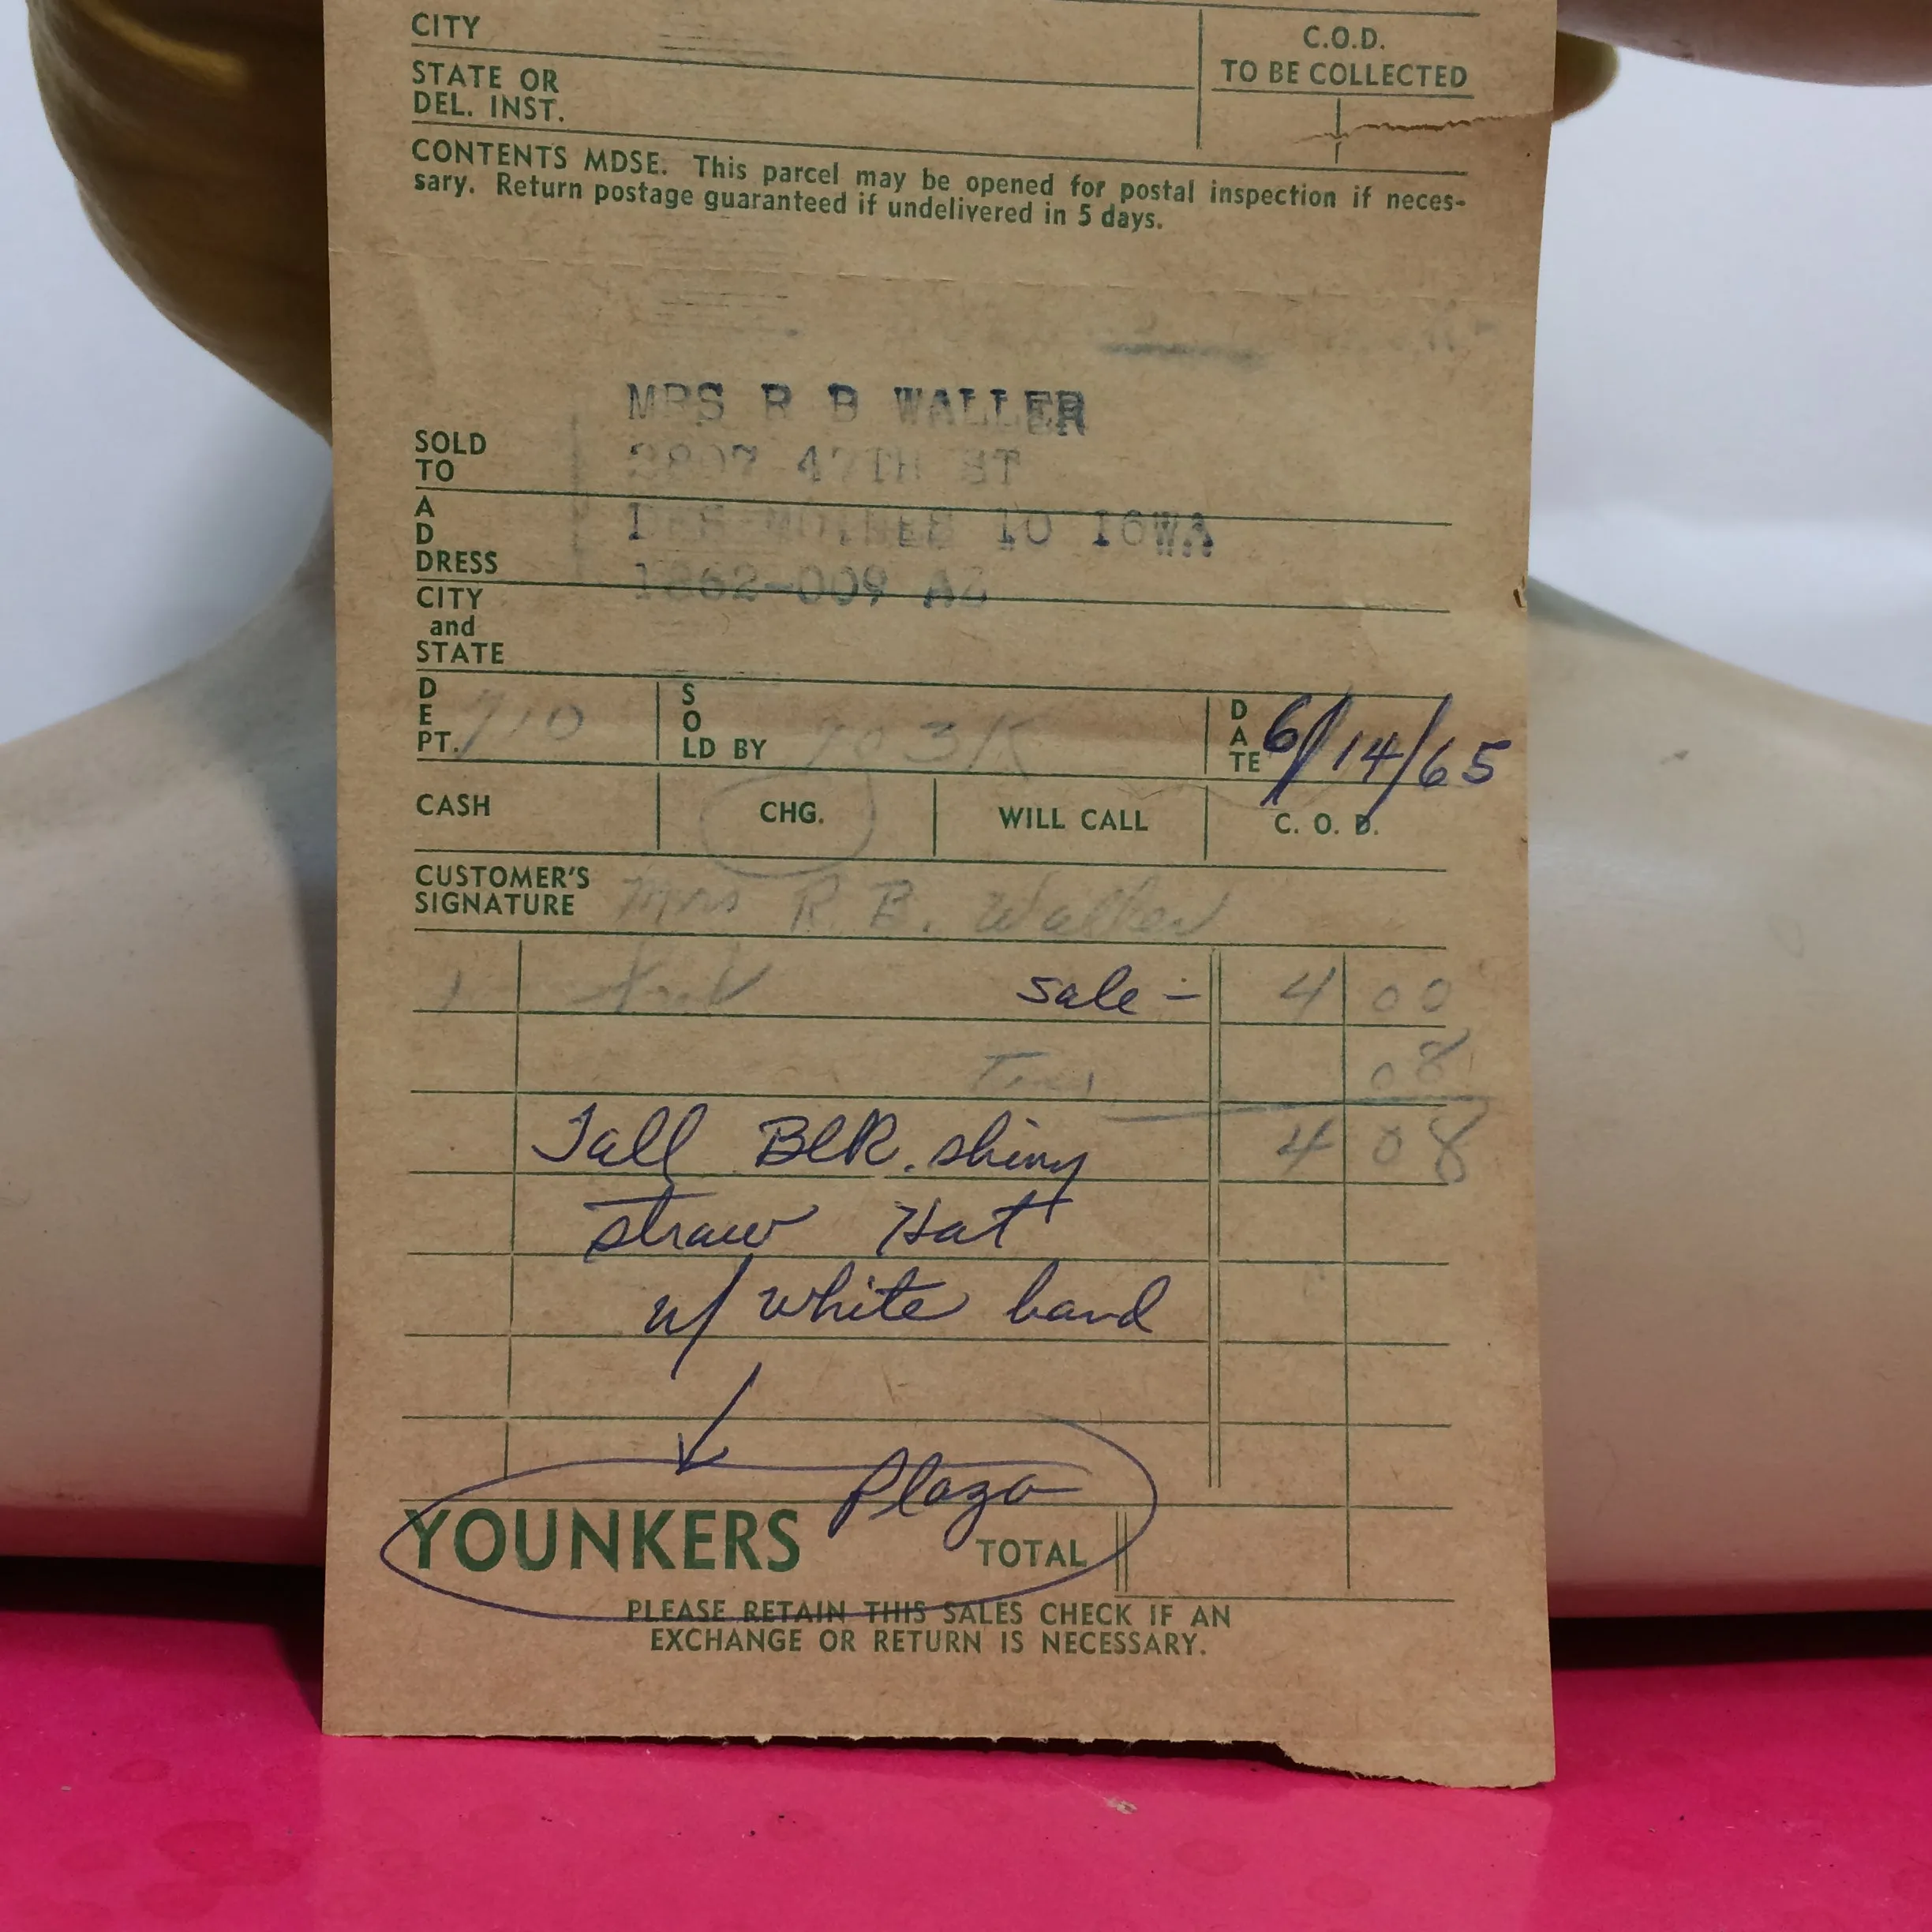 CITY
C.O.D.
TO BE COLLECTED
STATE OR
DEL. INST.
CONTENTS MDSE. This parcel may be opened for postal inspection if neces-
sary. Return postage guaranteed if undelivered in 5 days.
MRS R B WALLER
SOLD
TO
47TH ST
ADDRESS
10 IOWA
CITY
and
STATE
DEPT. 710
SOLD BY 703K
DATE 6/14/65
CASH
CHG.
WILL CALL
C. O. D.
CUSTOMER'S
SIGNATURE Mrs R. B. Waller
1 sale - 4 00
08
Tall BLK. shiny 4 08
straw Hat
w/ white band
Plaza
YOUNKERS TOTAL
PLEASE RETAIN THIS SALES CHECK IF AN
EXCHANGE OR RETURN IS NECESSARY.